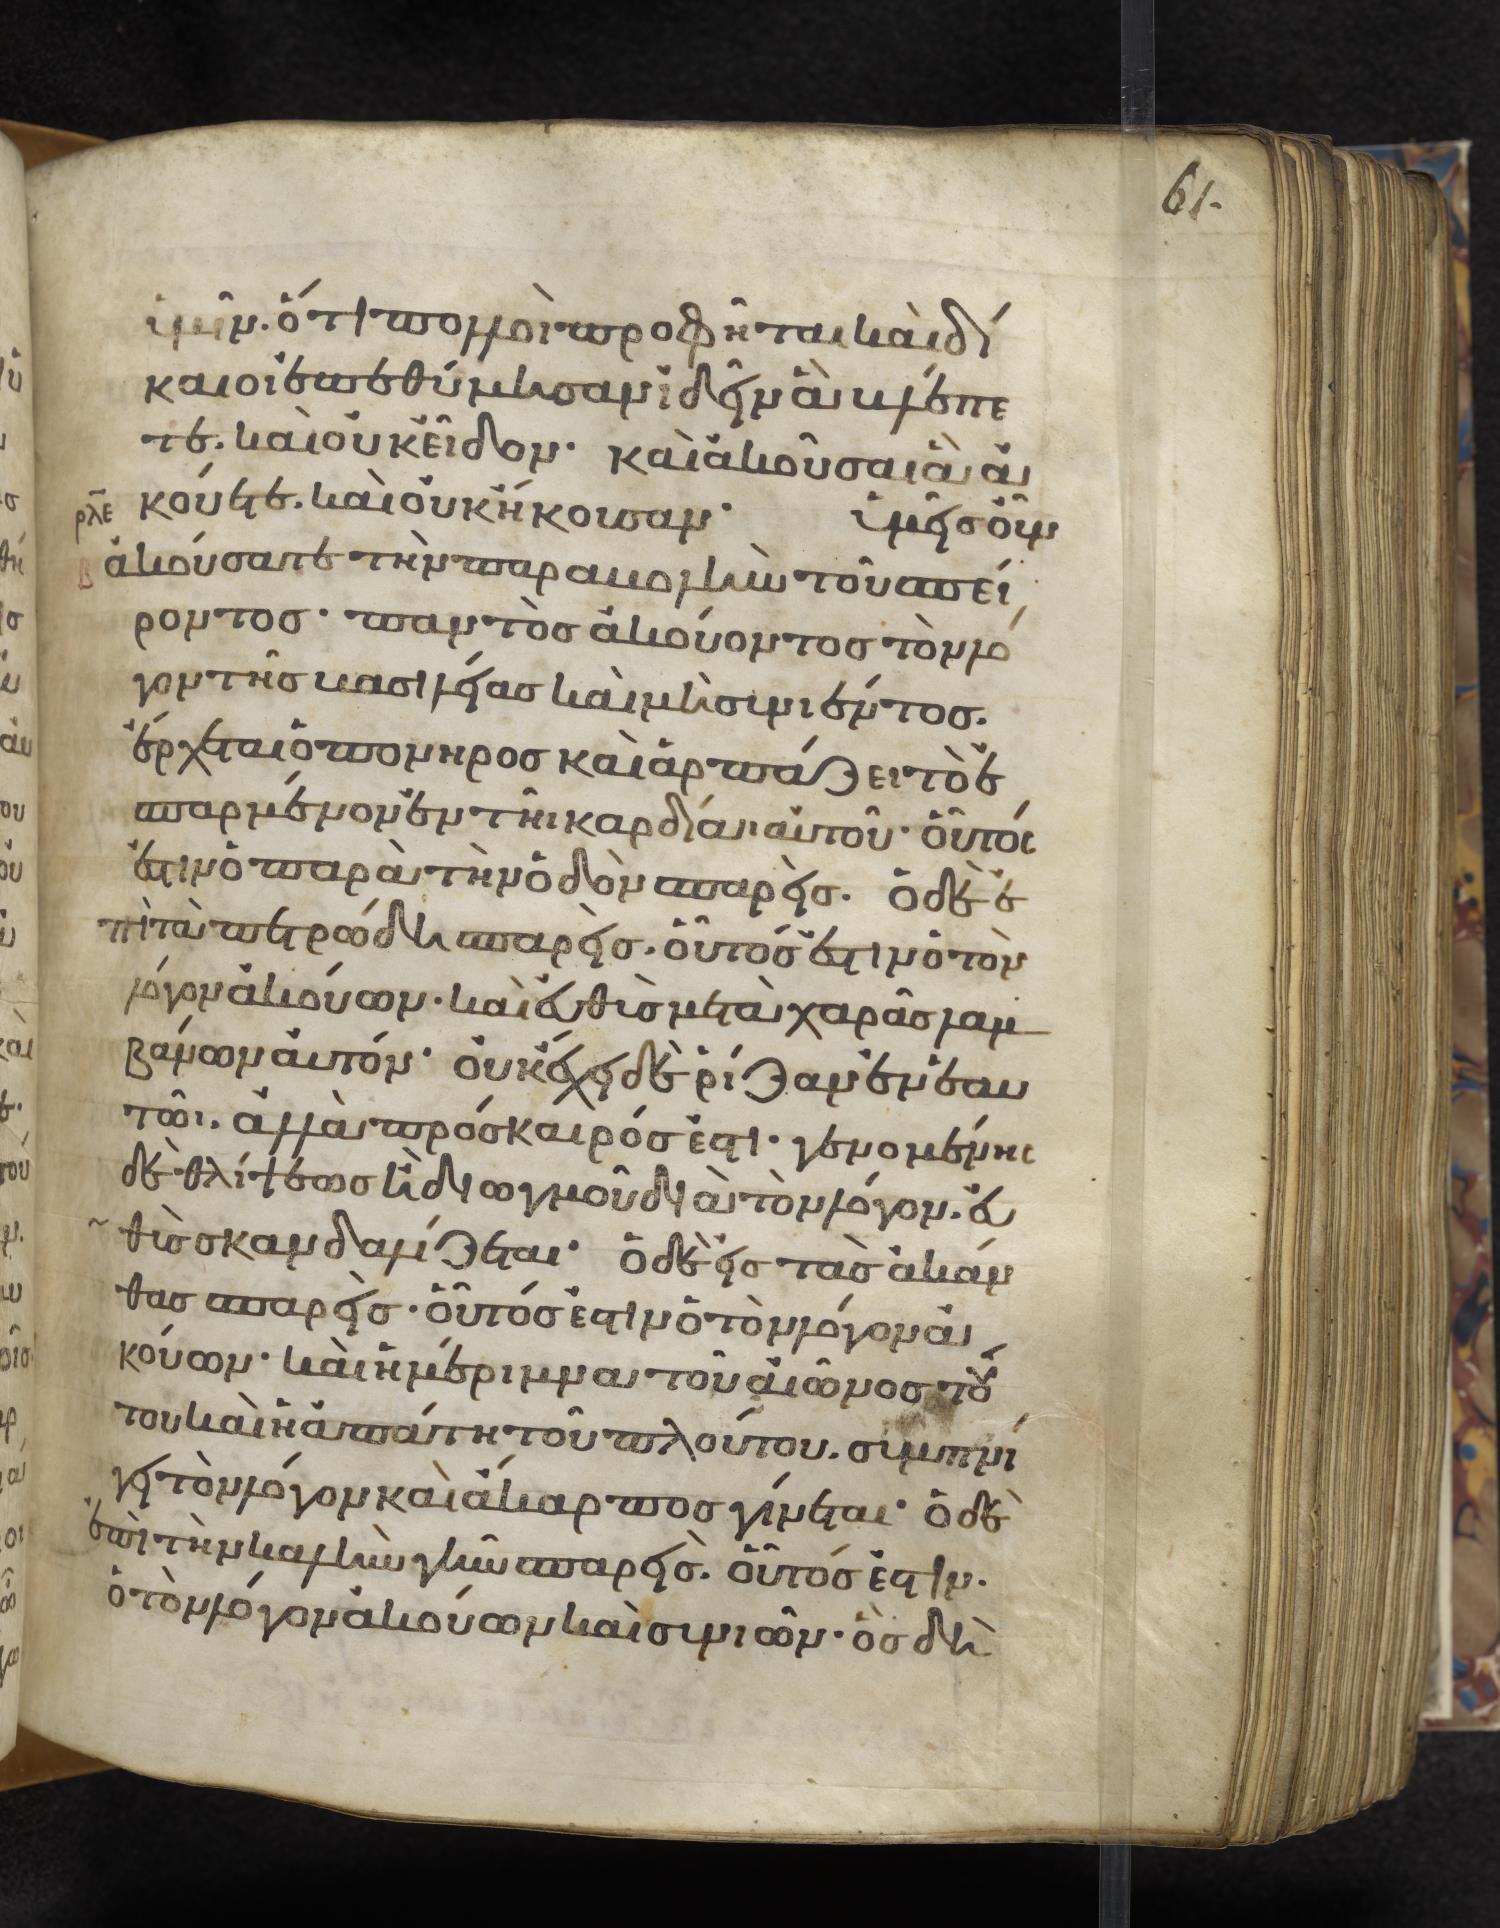 61.
ὑμῖν. ὅτι πολλοὶ προφῆται καὶ δί
καιοι ἐπεθύμησαν ἰδεῖν ἃ βλέπε
τε. καὶ οὐκ εἶδον· καὶ ἀκοῦσαι ἃ ἀ
κούετε. καὶ οὐκ ἤκουσαν· ὑμεῖς οὖν
ρλε
β
ἀκούσατε τὴν παραβολὴν τοῦ σπεί
ροντος· παντὸς ἀκούοντος τὸν λό
γον τῆς βασιλείας καὶ μὴ συνιέντος.
ἔρχεται ὁ πονηρὸς καὶ ἁρπάζει τὸ ἐ
σπαρμένον ἐν τῆι καρδίαι αὐτοῦ· οὗτός
ἐστιν ὁ παρὰ τὴν ὁδὸν σπαρείς. ὁ δὲ ἐ
πὶ τὰ πετρώδη σπαρείς. οὗτός ἐστιν ὁ τὸν
λόγον ἀκούων· καὶ εὐθὺς μετὰ χαρᾶς λαμ
βάνων αὐτόν· οὐκ ἔχει δὲ ῥίζαν ἐν ἑαυ
τῶι. ἀλλὰ πρόσκαιρός ἐστι· γενομένης
δὲ θλίψεως ἢ διωγμοῦ διὰ τὸν λόγον. εὐ
θὺς σκανδαλίζεται· ὁ δὲ εἰς τὰς ἀκάν
θας σπαρείς· οὗτός ἐστιν ὁ τὸν λόγον ἀ
κούων· καὶ ἡ μέριμνα τοῦ αἰῶνος τού
του καὶ ἡ ἀπάτη τοῦ πλούτου. συμπνί
γει τὸν λόγον καὶ ἄκαρπος γίνεται· ὁ δὲ
ἐπὶ τὴν καλὴν γῆν σπαρείς. οὗτός ἐστιν.
ὁ τὸν λόγον ἀκούων καὶ συνιῶν· ὃς δὴ